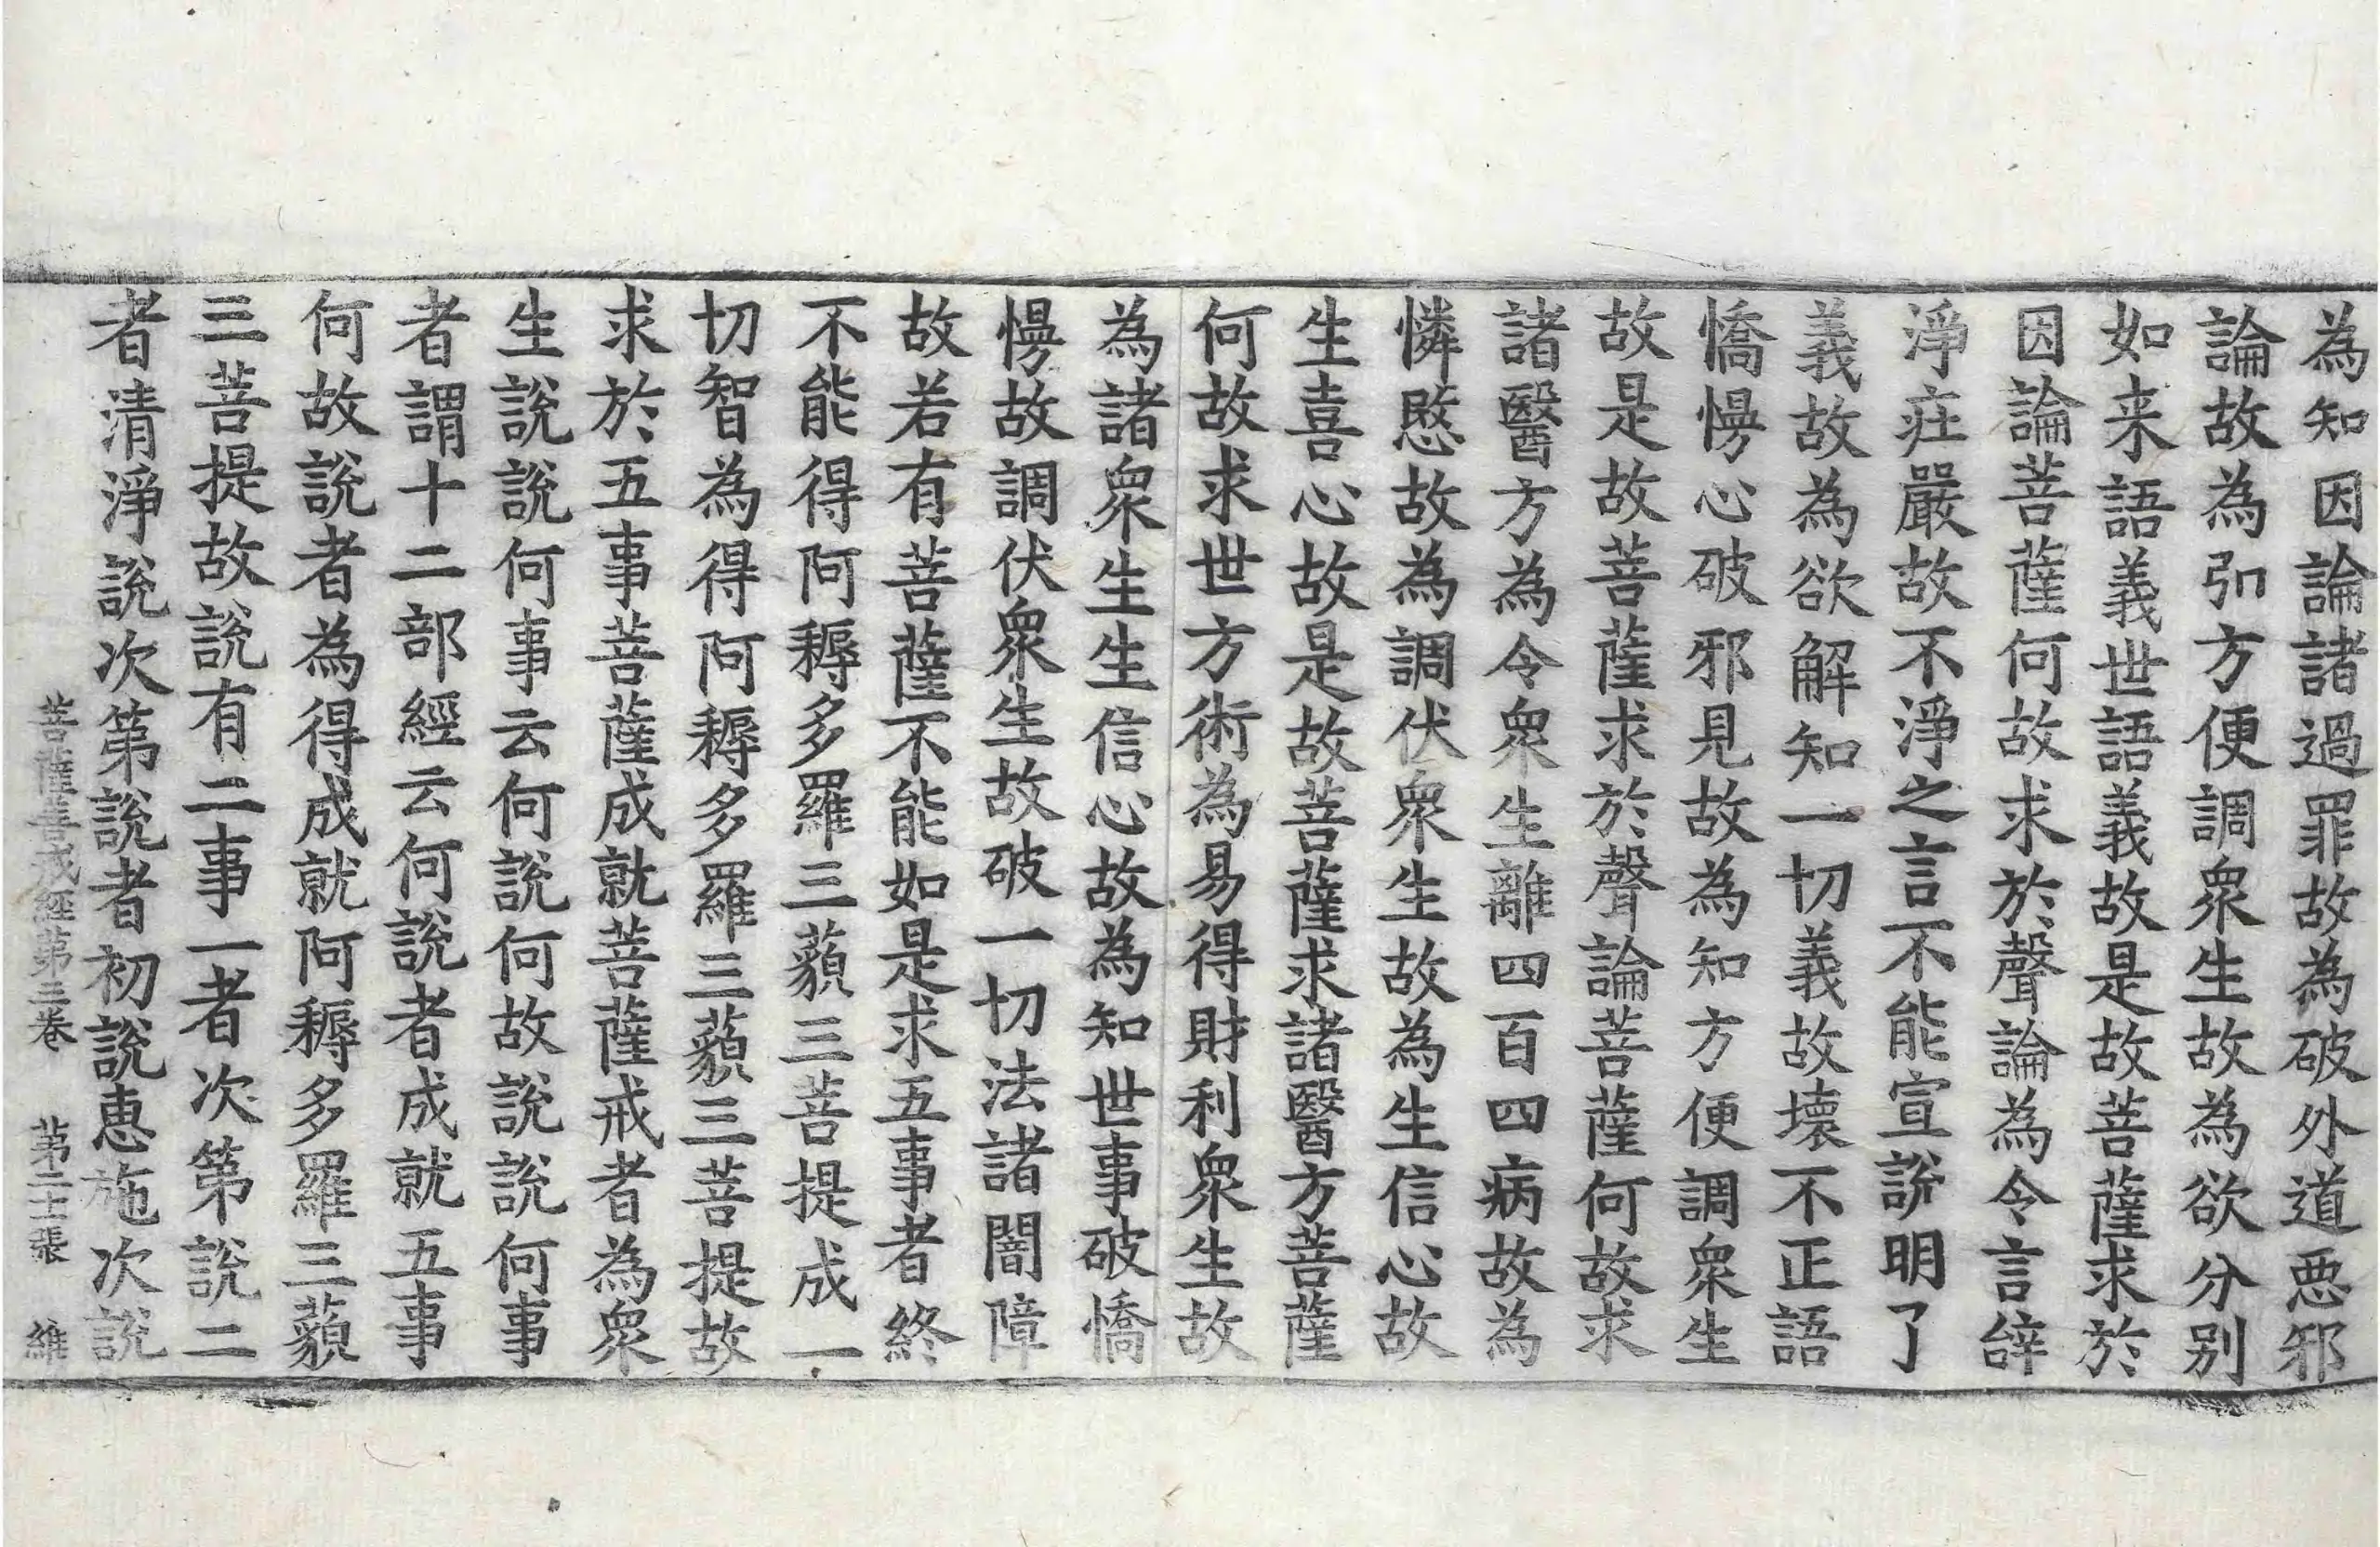 為知因論諸過罪故為破外道惡邪
論故為引方便調眾生故為欲分別
如来語義世語義故是故菩薩求於
因論菩薩何故求於聲論為令言辝
淨庄嚴故不淨之言不能宣說明了
義故為欲解知一切義故壞不正語
憍慢心破邪見故為知方便調眾生
故是故菩薩求於聲論菩薩何故求
諸醫方為令眾生離四百四病故為
憐愍故為調伏眾生故為生信心故
生喜心故是故菩薩求諸醫方菩薩
何故求世方術為易得財利眾生故
為諸眾生生信心故為知世事破憍
慢故調伏眾生故破一切法諸闇障
故若有菩薩不能如是求五事者終
不能得阿耨多羅三藐三菩提成一
切智為得阿耨多羅三藐三菩提故
求於五事菩薩成就菩薩戒者為眾
生說說何事云何說何故說說何事
者謂十二部經云何說者成就五事
何故說者為得成就阿耨多羅三藐
三菩提故說有二事一者次第說二
者清淨說次第說者初說惠施次說
菩薩善戒經第三卷　第二十張　維